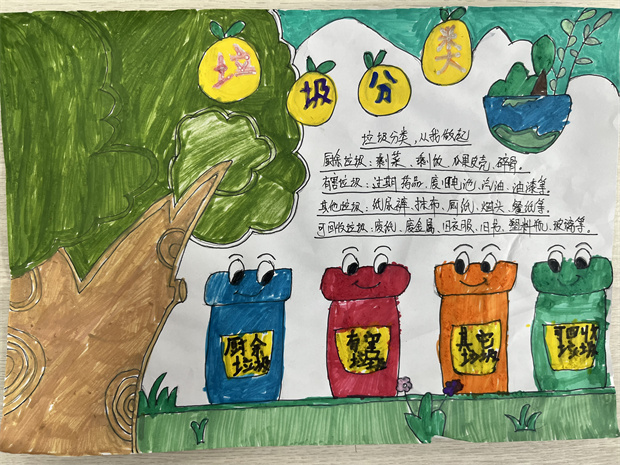 垃圾分类
垃圾分类,从我做起
厨余垃圾:剩菜、剩饭、瓜果皮壳、碎骨。
有害垃圾:过期药品、废旧电池、汽油、油漆等。
其他垃圾:纸尿裤、抹布、厕纸、烟头、餐纸等。
可回收垃圾:废纸、废金属、旧衣服、旧书、塑料瓶、玻璃等。
厨余
垃圾
有害
垃圾
其它
垃圾
可回收
垃圾